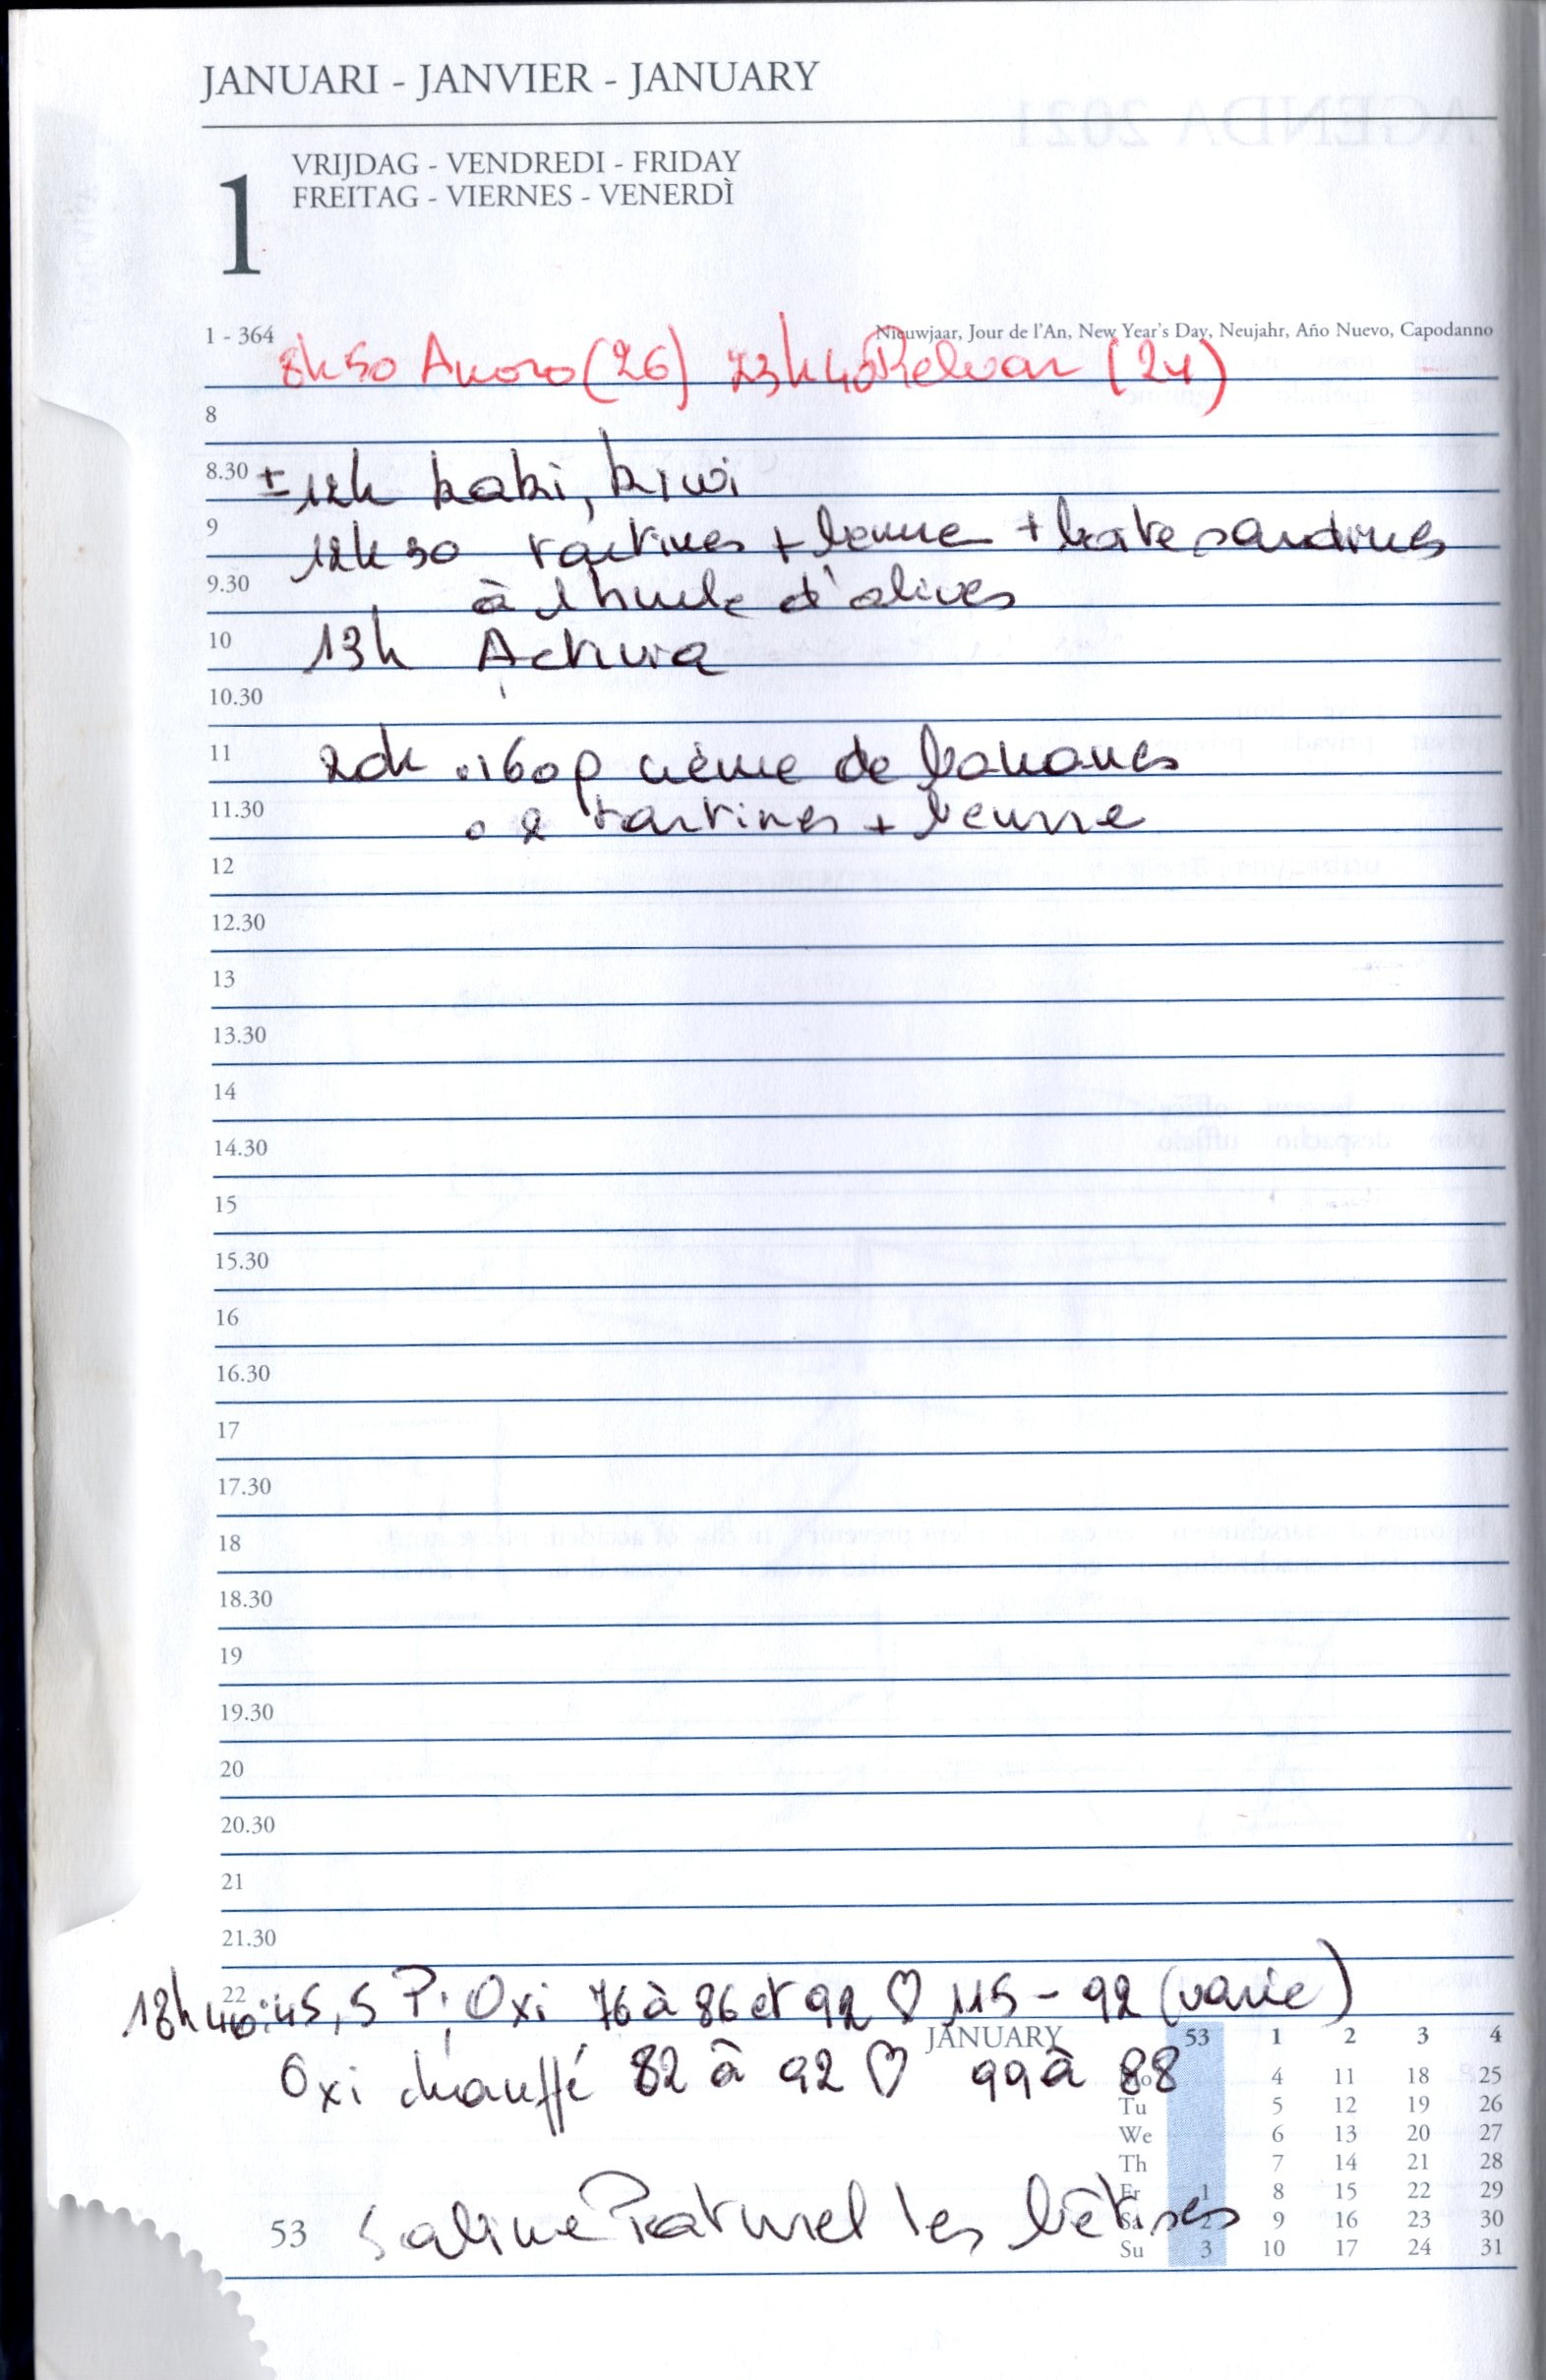 JANUARI - JANVIER - JANUARY
1
VRIJDAG - VENDREDI - FRIDAY
FREITAG - VIERNES - VENERDÌ
1 - 364
Nieuwjaar, Jour de l'An, New Year's Day, Neujahr, Año Nuevo, Capodanno
8h50 Anoro (26) 23h40 Relvar (24)
8
8.30 ± 12h kaki, kiwi
9 12h30 tartines + beurre + boite sardines
9.30 à l'huile d'olives
10 13h Activia
10.30
11 20h . 160g crème de bananes
11.30 . 2 tartines + beurre
12
12.30
13
13.30
14
14.30
15
15.30
16
16.30
17
17.30
18
18.30
19
19.30
20
20.30
21
21.30
22
18h40: 45,5 P; Oxi 76 à 86 et 92 ♡ 115 - 92 (varie)
Oxi chauffé 82 à 92 ♡ 99 à 88
JANUARY 53 1 2 3 4
Mo 4 11 18 25
Tu 5 12 19 26
We 6 13 20 27
Th 7 14 21 28
Fr 1 8 15 22 29
Sa 2 9 16 23 30
Su 3 10 17 24 31
53 les bêtises